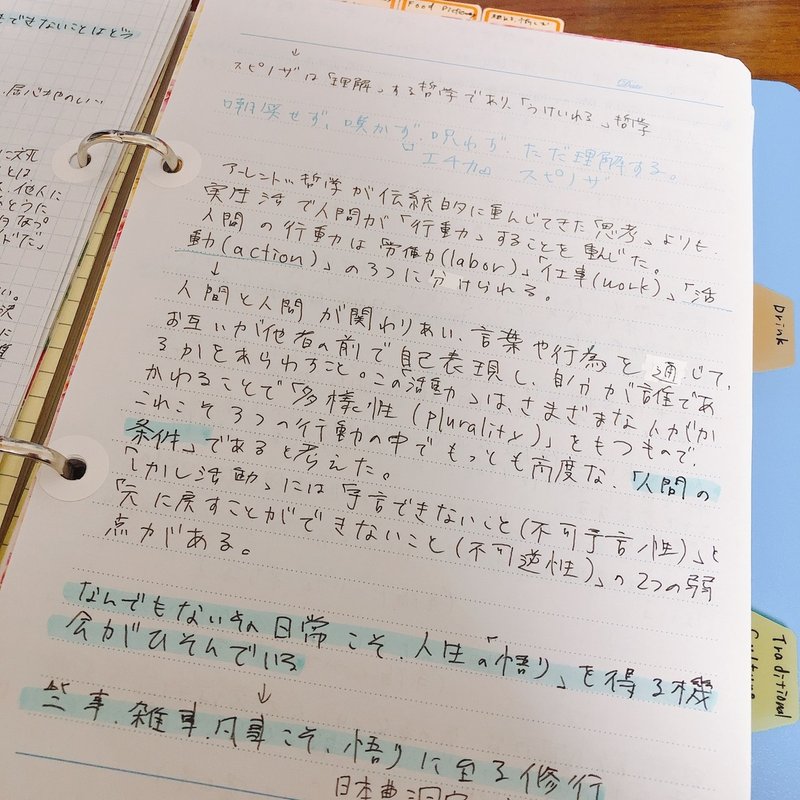 Food Pick
できないことはどう
居心地のいい
とは
、他人に
Date
↓
スピノザは「理解」する哲学であり、「うけいれる」哲学
嘲笑せず、嘆かず、呪わず、ただ理解する。
エチカ スピノザ
アーレント哲学が伝統的に重んじてきた「思考」よりも、
実生活で人間が「行動」することを重んじた。
人間の行動は労働力(labor)」「仕事(work)」「活
動(action)」の3つに分けられる。
↓
人間と人間が関わりあい、言葉や行為を通じて、
お互いが他者の前で自己表現し、自分が誰であ
るかをあらわすこと。この「活動」は、さまざまな人がか
かわることで「多様性(plurality)」をもつもので、
これこそ3つの行動の中でもっとも高度な、「人間の
条件」であると考えた。
「しかし活動」には「予言できないこと(不可予言性)」と
「元に戻すことができないこと(不可逆性)」の2つの弱
点がある。
なんでもない日常こそ、人生の「悟り」を得る機
会がひそんでいる
↓
些事、雑事、凡事こそ、悟りに至る修行
日本曹洞宗
Drink
Traditional
Culture